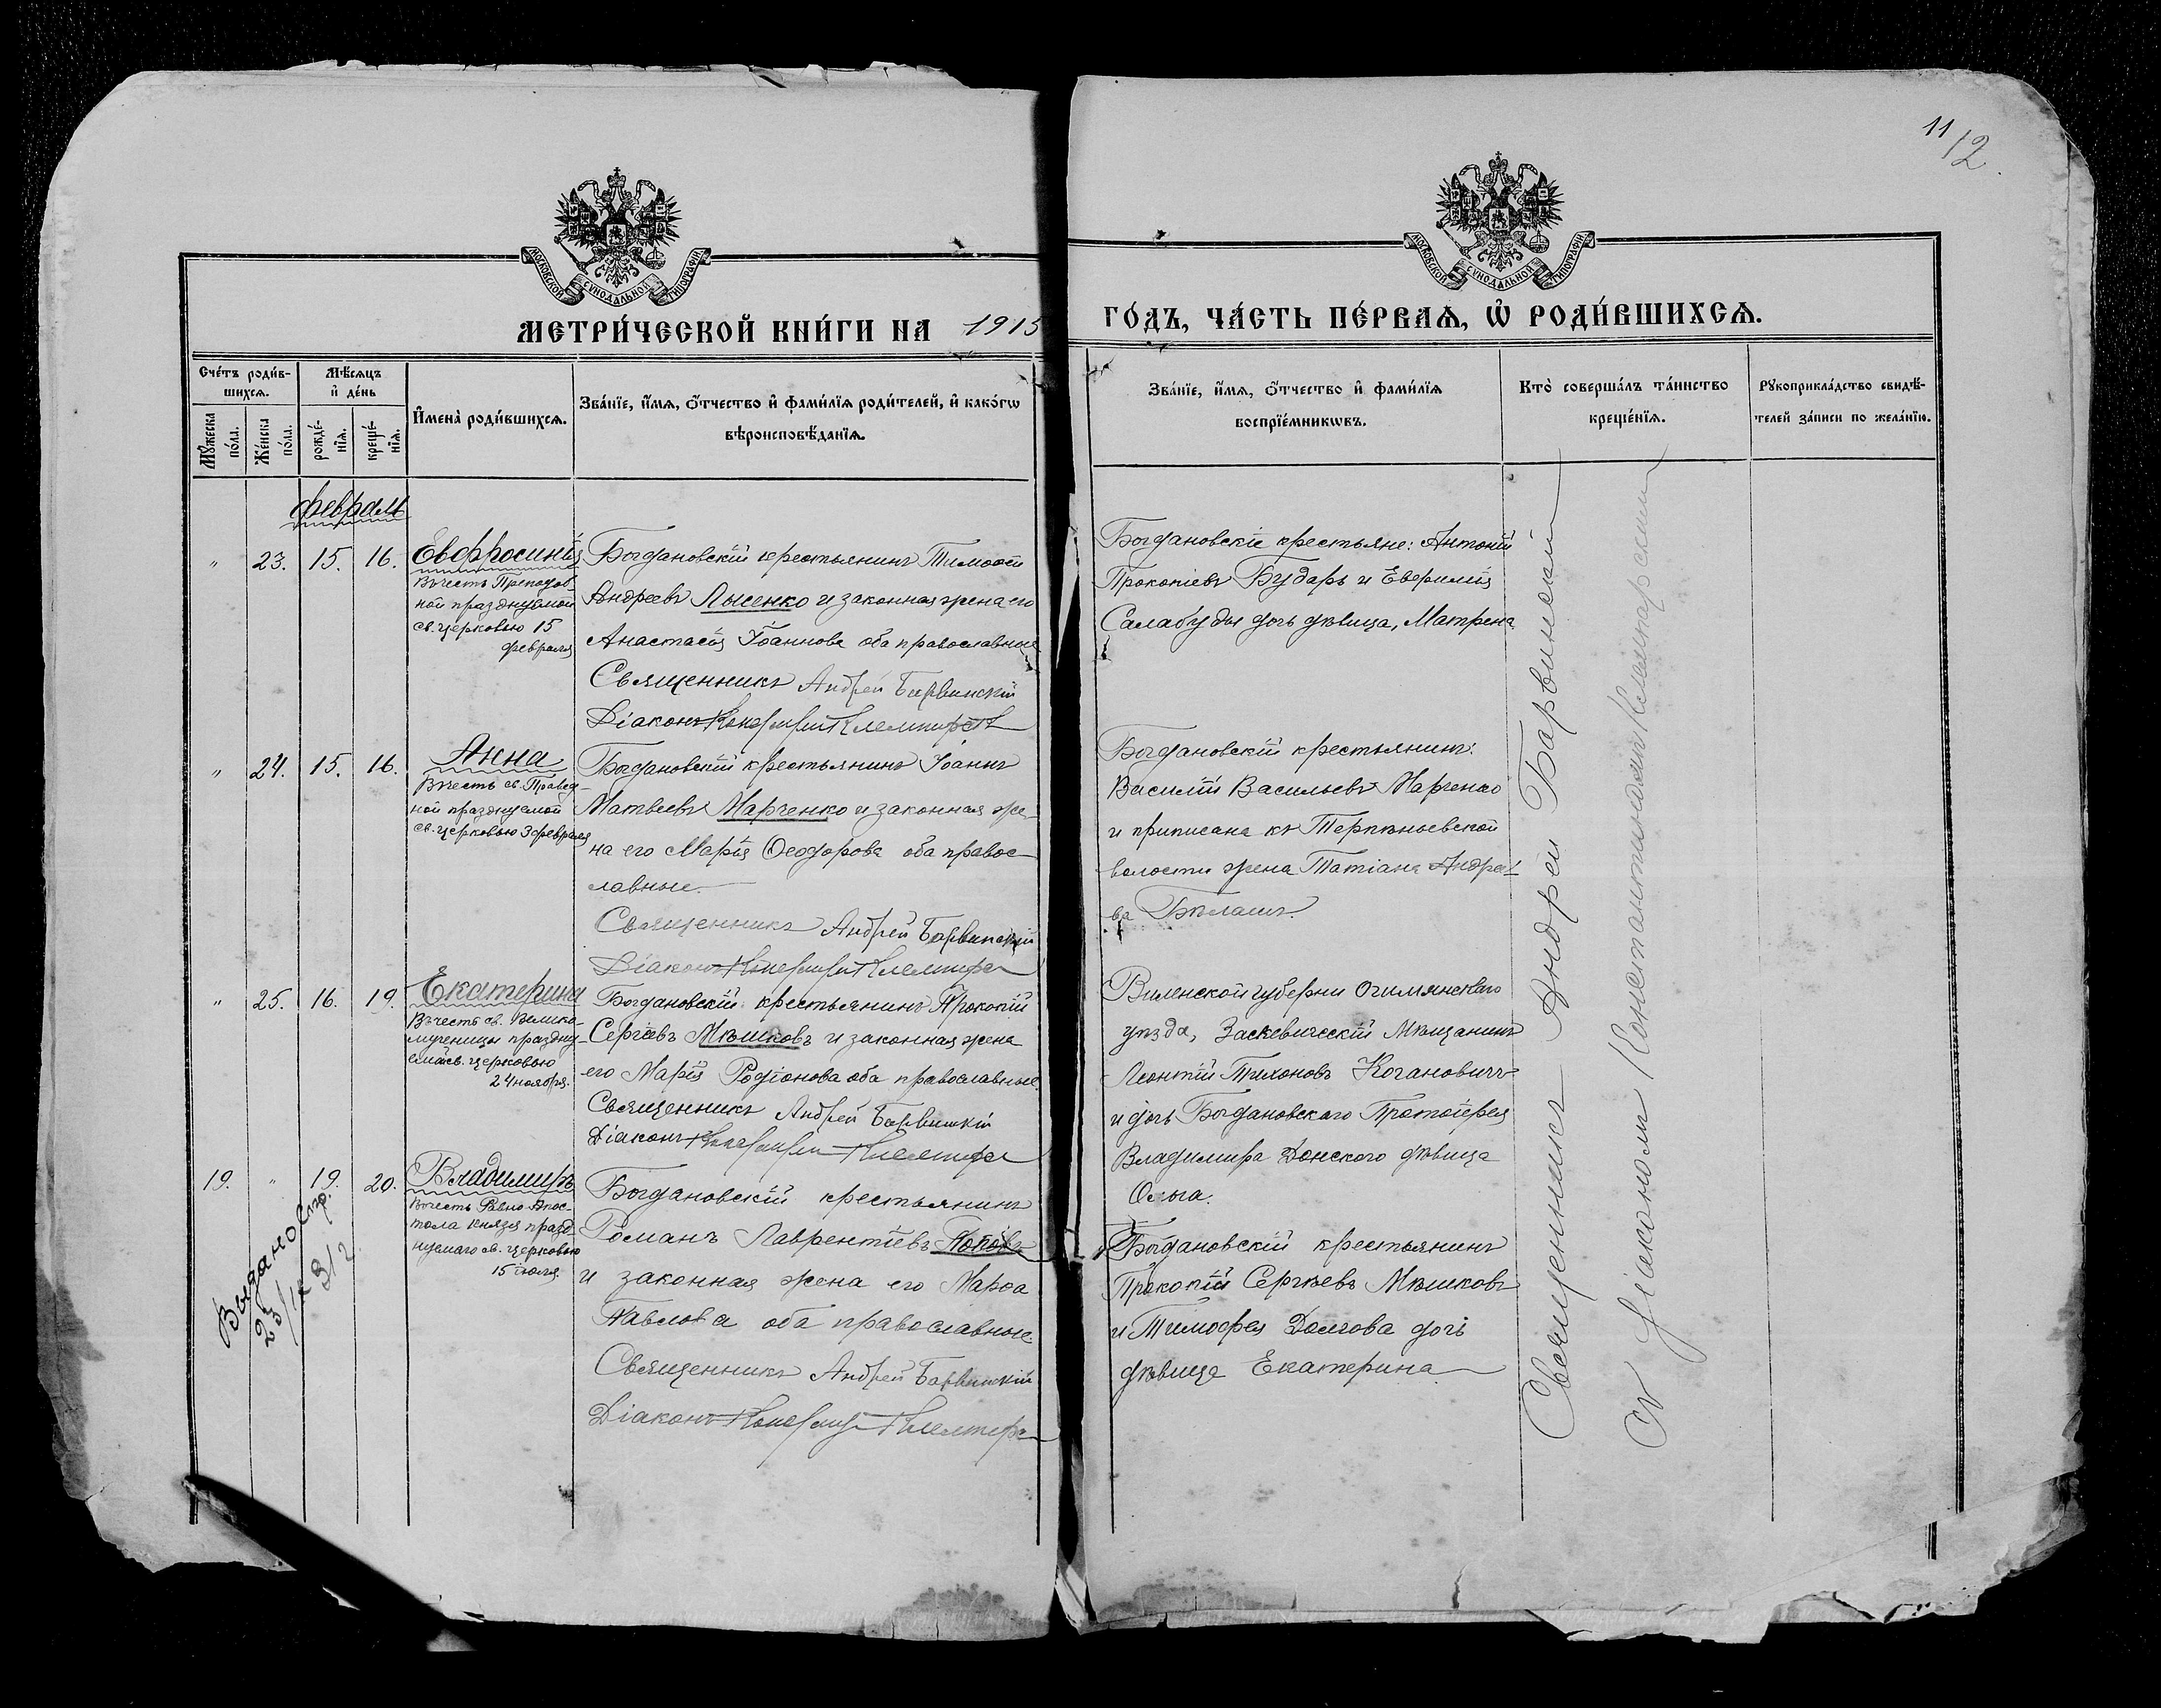 11/12
МОСКОВСКОЙ СѴНОДАЛЬНОЙ ТИПОГРАФІИ
МОСКОВСКОЙ СѴНОДАЛЬНОЙ ТИПОГРАФІИ
МЕТРИ́ЧЕСКОЙ КНИ́ГИ НА 1915
ГО́ДЪ, ЧА́СТЬ ПЕ́РВАѦ, Ѡ҆ РОДИ́ВШИХСѦ.
Сче́тъ роди́в-
шихсѧ.
Мѣ́сѧцъ
и҆ де́нь
Мꙋ́жеска
по́ла.
Же́нска
по́ла.
рожде́-
нїѧ.
креще́-
нїѧ.
И҆мена̀ роди́вшихсѧ.
Зва́нїе, и҆́мѧ, ѻ҆́тчество и҆ фами́лїѧ роди́телей, и҆ како́гѡ
вѣроисповѣ́данїѧ.
Зва́нїе, и҆́мѧ, ѻ҆́тчество и҆ фами́лїѧ
воспрїе́мникѡвъ.
Кто̀ соверша́лъ та́инство
креще́нїѧ.
Рꙋкоприкла́дство свидѣ́-
телей за́писи по жела́нїю.
февраль
" 23. 15. 16. Евфросинія
Въ честь Преподоб-
ной празднуемой
св. церковью 15
февраля
Богдановскій крестьянинъ Тимоѳей
Андреевъ Лысенко и законная жена его
Анастасія Іоаннова оба православные
Священникъ Андрей Барвинскій
Діаконъ
Богдановскіе крестьяне: Антоній
Прокопіевъ Бударь и Евфимія
Салабуды дочь дѣвица, Матрена
" 24. 15. 16. Анна
Въ честь св. Правед-
ной празднуемой
св. церковью 3 февраля
Богдановскій крестьянинъ Іоаннъ
Матвеевъ Марченко и законная же-
на его Марія Ѳеодорова оба правос-
лавные.
Священникъ Андрей Барвинскій
Діаконъ
Богдановскій крестьянинъ:
Василій Васильевъ Марченко
и приписана къ Терпѣньевской
волости жена Татіана Андрее-
ва Бѣлашъ.
" 25. 16. 19. Екатерина
Въ честь св. Велико-
мученицы праздну-
емая св. церковью
24 ноября.
Богдановскій крестьянинъ Прокопій
Сергіевъ Мѣшковъ и законная жена
его Марія Родіонова оба православные.
Священникъ Андрей Барвинскій
Діаконъ
Виленской губерни Ошмянскаго
уѣзда, Заскевическій Мѣщанинъ
Леонтій Тихоновъ Когановичъ
и дочь Богдановскаго Протоіерея
Владимира Донского дѣвица
Ольга.
19. " 19. 20. Владимиръ
Въ честь Равно-Апос-
тола князя празд-
нуемаго св. церковью
15 іюля.
Богдановскій крестьянинъ
Романъ Лаврентіевъ Поповъ
и законная жена его Марѳа
Павлова оба православные
Священникъ Андрей Барвинскій
Діаконъ
Богдановскій крестьянинъ
Прокопій Сергѣевъ Мѣшковъ
и Тимофея Долгова дочь
дѣвица Екатерина
Выдано
Священникъ Андрей Барвинскій
съ діакономъ Константиномъ